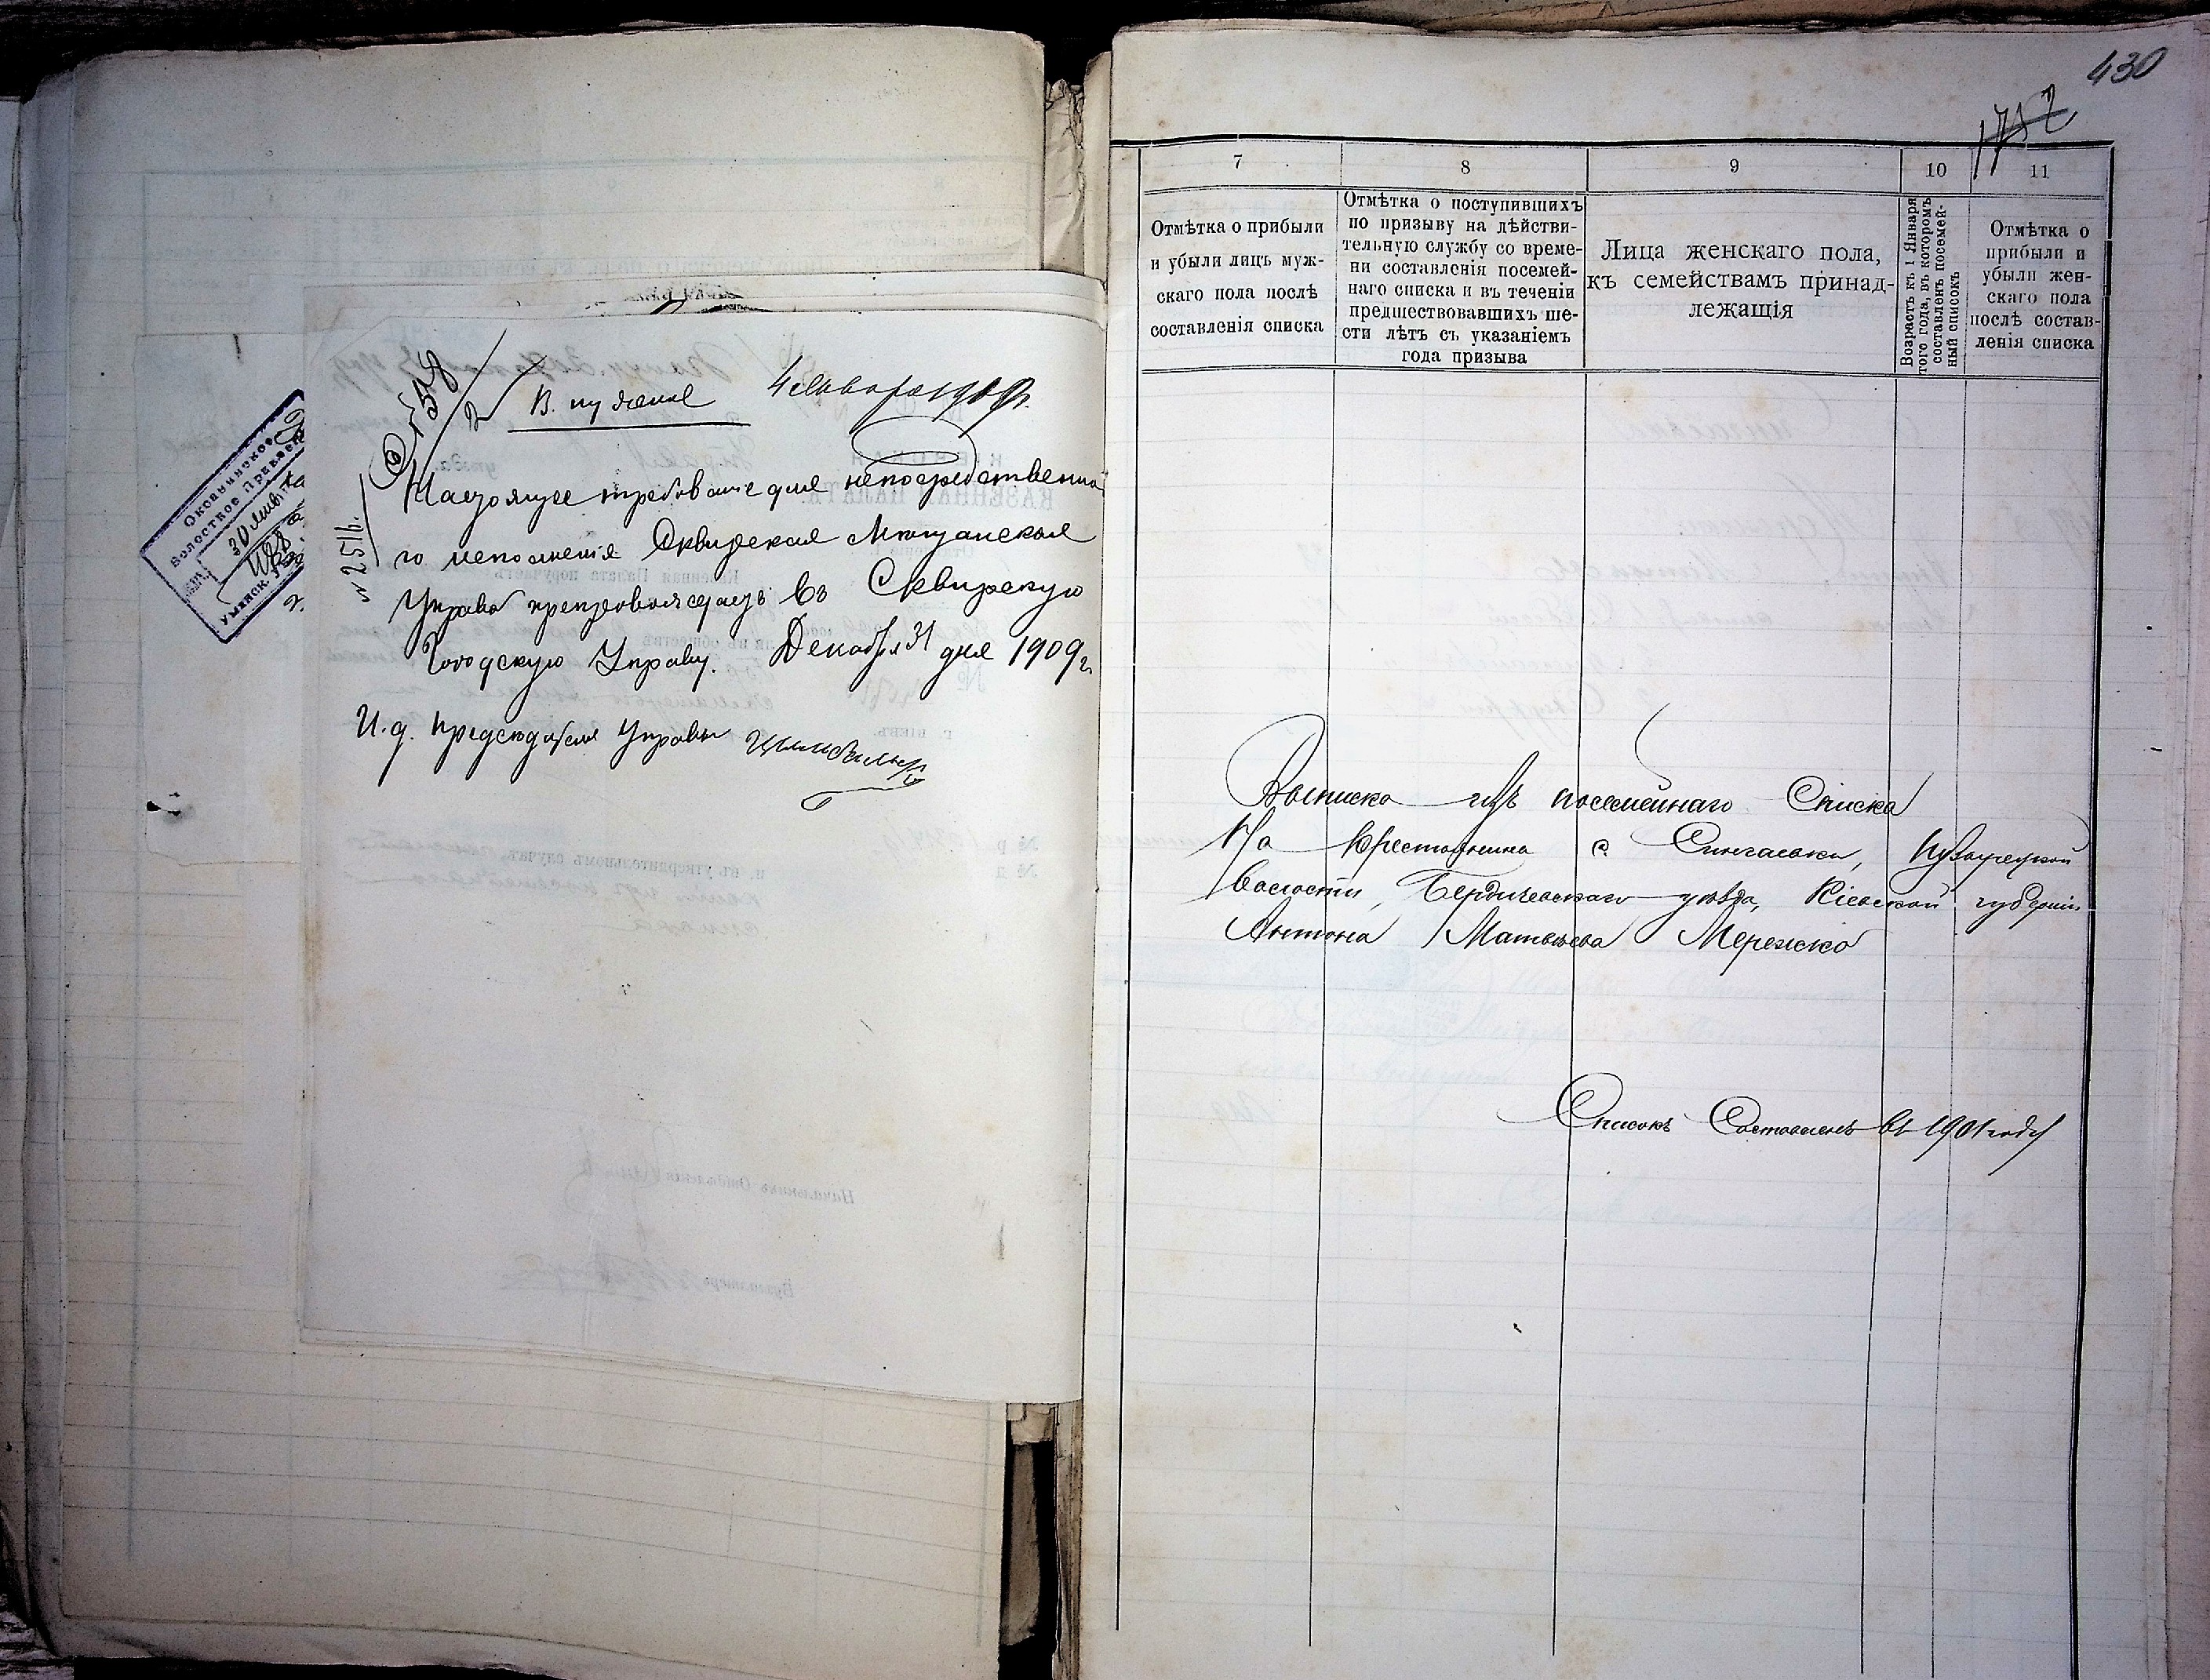 В. нужное
4 января 1910 г.
№ 2511.
Настоящее требование для непосредственна
го исполненія Сквирская Мѣщанская
Управа препровождаетъ въ Сквирскую
Городскую Управу. Декабря 31 дня 1909 г.
И. д. Предсѣдателя Управы
Волостное Правлен
30
430
7
8
9
10
11
Отмѣтка о прибыли
и убыли лицъ муж-
скаго пола послѣ
составленія списка
Отмѣтка о поступившихъ
по призыву на дѣйстви-
тельную службу со време-
ни составленія посемей-
наго списка и въ теченіи
предшествовавшихъ ше-
сти лѣтъ съ указаніемъ
года призыва
Лица женскаго пола,
къ семействамъ принад-
лежащія
Возрастъ къ 1 Января
того года, въ которомъ
составленъ посемей-
ный списокъ
Отмѣтка о
прибыли и
убыли жен-
скаго пола
послѣ состав-
ленія списка
Выписка изъ посемейнаго Списка
На крестьянина с. Сингаевки,
волости, Бердичевскаго уѣзда, Кіевской губерніи
Антона Матвѣева Мережко
Списокъ Составленъ въ 1901 году